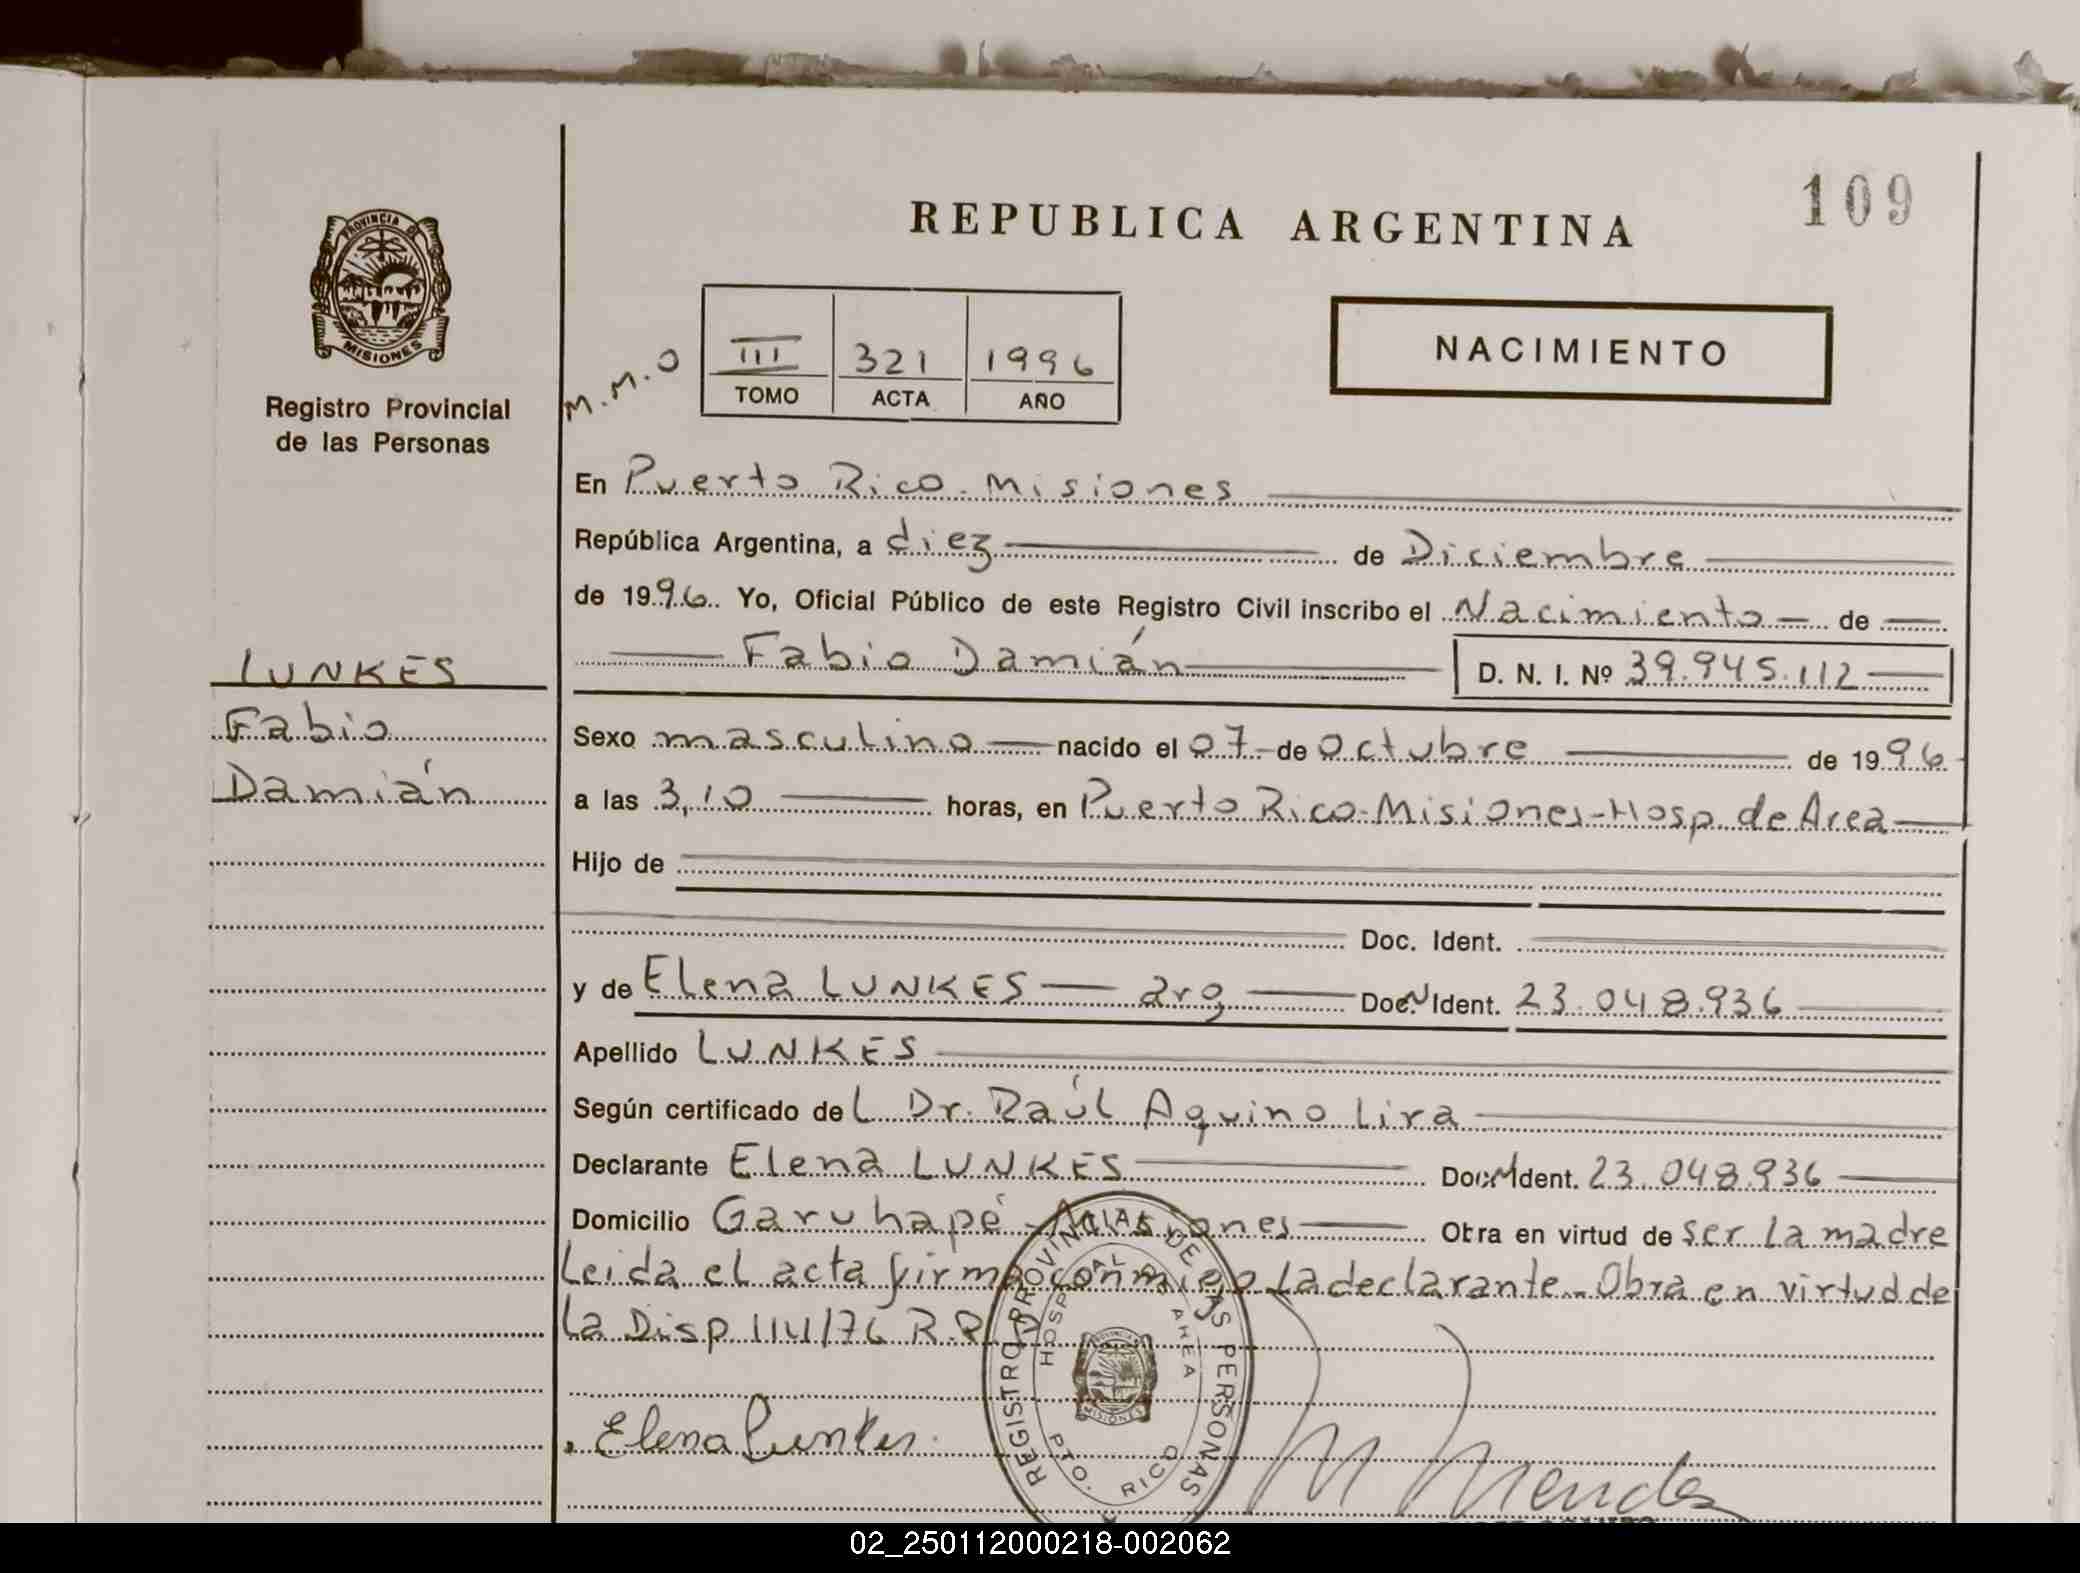 109
REPUBLICA ARGENTINA
PROVINCIA DE
MISIONES
Registro Provincial
de las Personas
M.M.O
III 321 1996
TOMO ACTA AÑO
NACIMIENTO
En Puerto Rico - Misiones
República Argentina, a diez de Diciembre
de 1996. Yo, Oficial Público de este Registro Civil inscribo el Nacimiento de
Fabio Damián D. N. I. Nº 39.945.112
LUNKES
Fabio
Damián
Sexo masculino nacido el 07 de octubre de 1996
a las 3,10 horas, en Puerto Rico - Misiones - Hosp. de Area
Hijo de
Doc. Ident.
y de Elena LUNKES arg Doc. N Ident. 23.048.936
Apellido LUNKES
Según certificado del Dr. Raúl Aquino Lira
Declarante Elena LUNKES Doc. N Ident. 23.048.936
Domicilio Garuhapé - Misiones Obra en virtud de ser la madre
Leida el acta firma conmigo la declarante - Obra en virtud de
la Disp 114/76 R.P.P
Elena Lunkes
REGISTRO PROVINCIAL DE LAS PERSONAS
HOSPITAL DE AREA
PTO. RICO
MISIONES
M Mendez
02_250112000218-002062